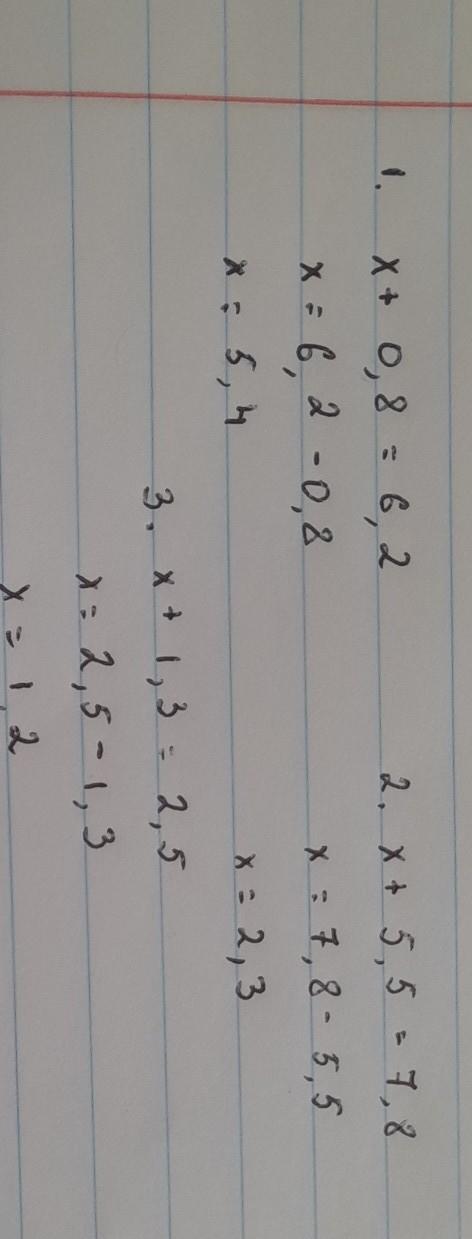 1. x + 0,8 = 6,2
x = 6,2 - 0,8
x = 5,4
2. x + 5,5 = 7,8
x = 7,8 - 5,5
x = 2,3
3. x + 1,3 = 2,5
x = 2,5 - 1,3
x = 1,2